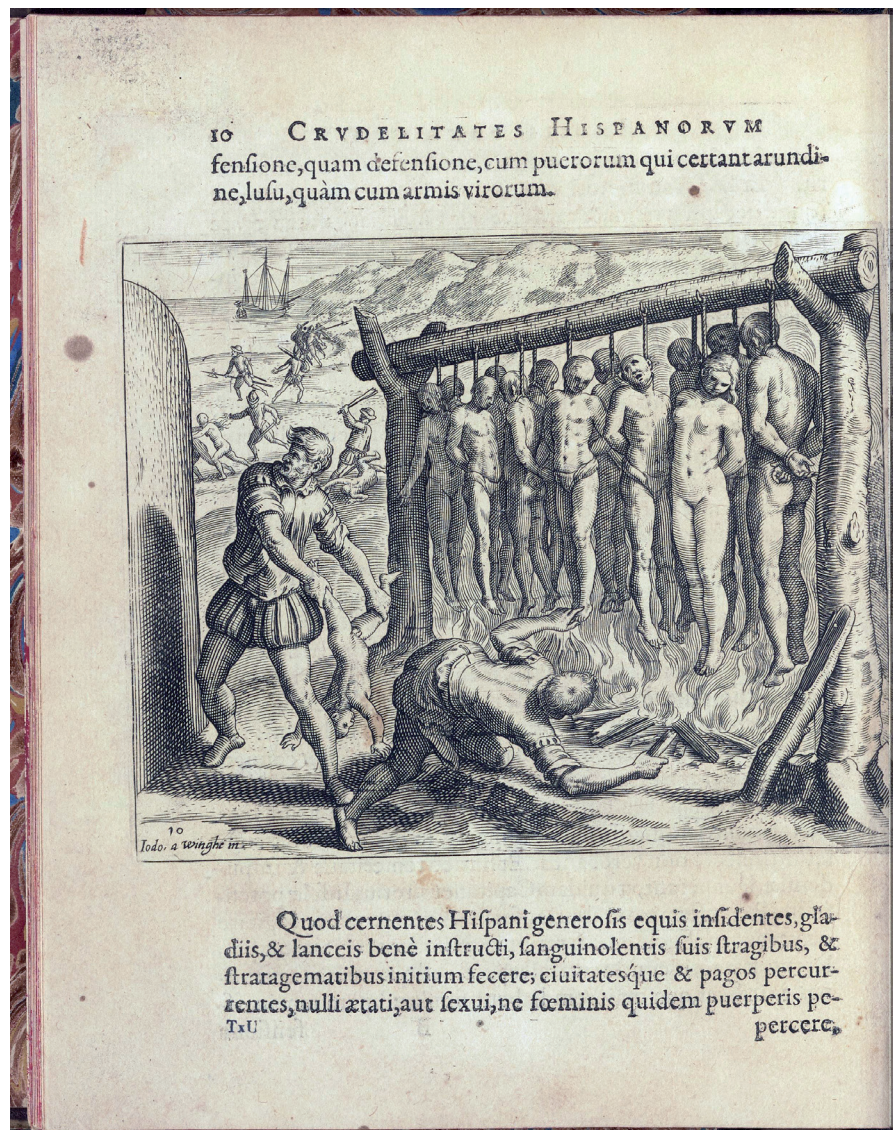 10 CRVDELITATES HISPANORVM
fenſione, quam defenſione, cum puerorum qui certant arundi-
ne, luſu, quàm cum armis virorum.
10
Iodo. a Winghe in.
Quod cernentes Hiſpani generoſis equis inſidentes, gla-
diis, & lanceis benè inſtructi, ſanguinolentis ſuis ſtragibus, &
ſtratagematibus initium fecere; ciuitateſq́ue & pagos percur-
rentes, nulli ætati, aut ſexui, ne fœminis quidem puerperis pe-
TxU
percere,